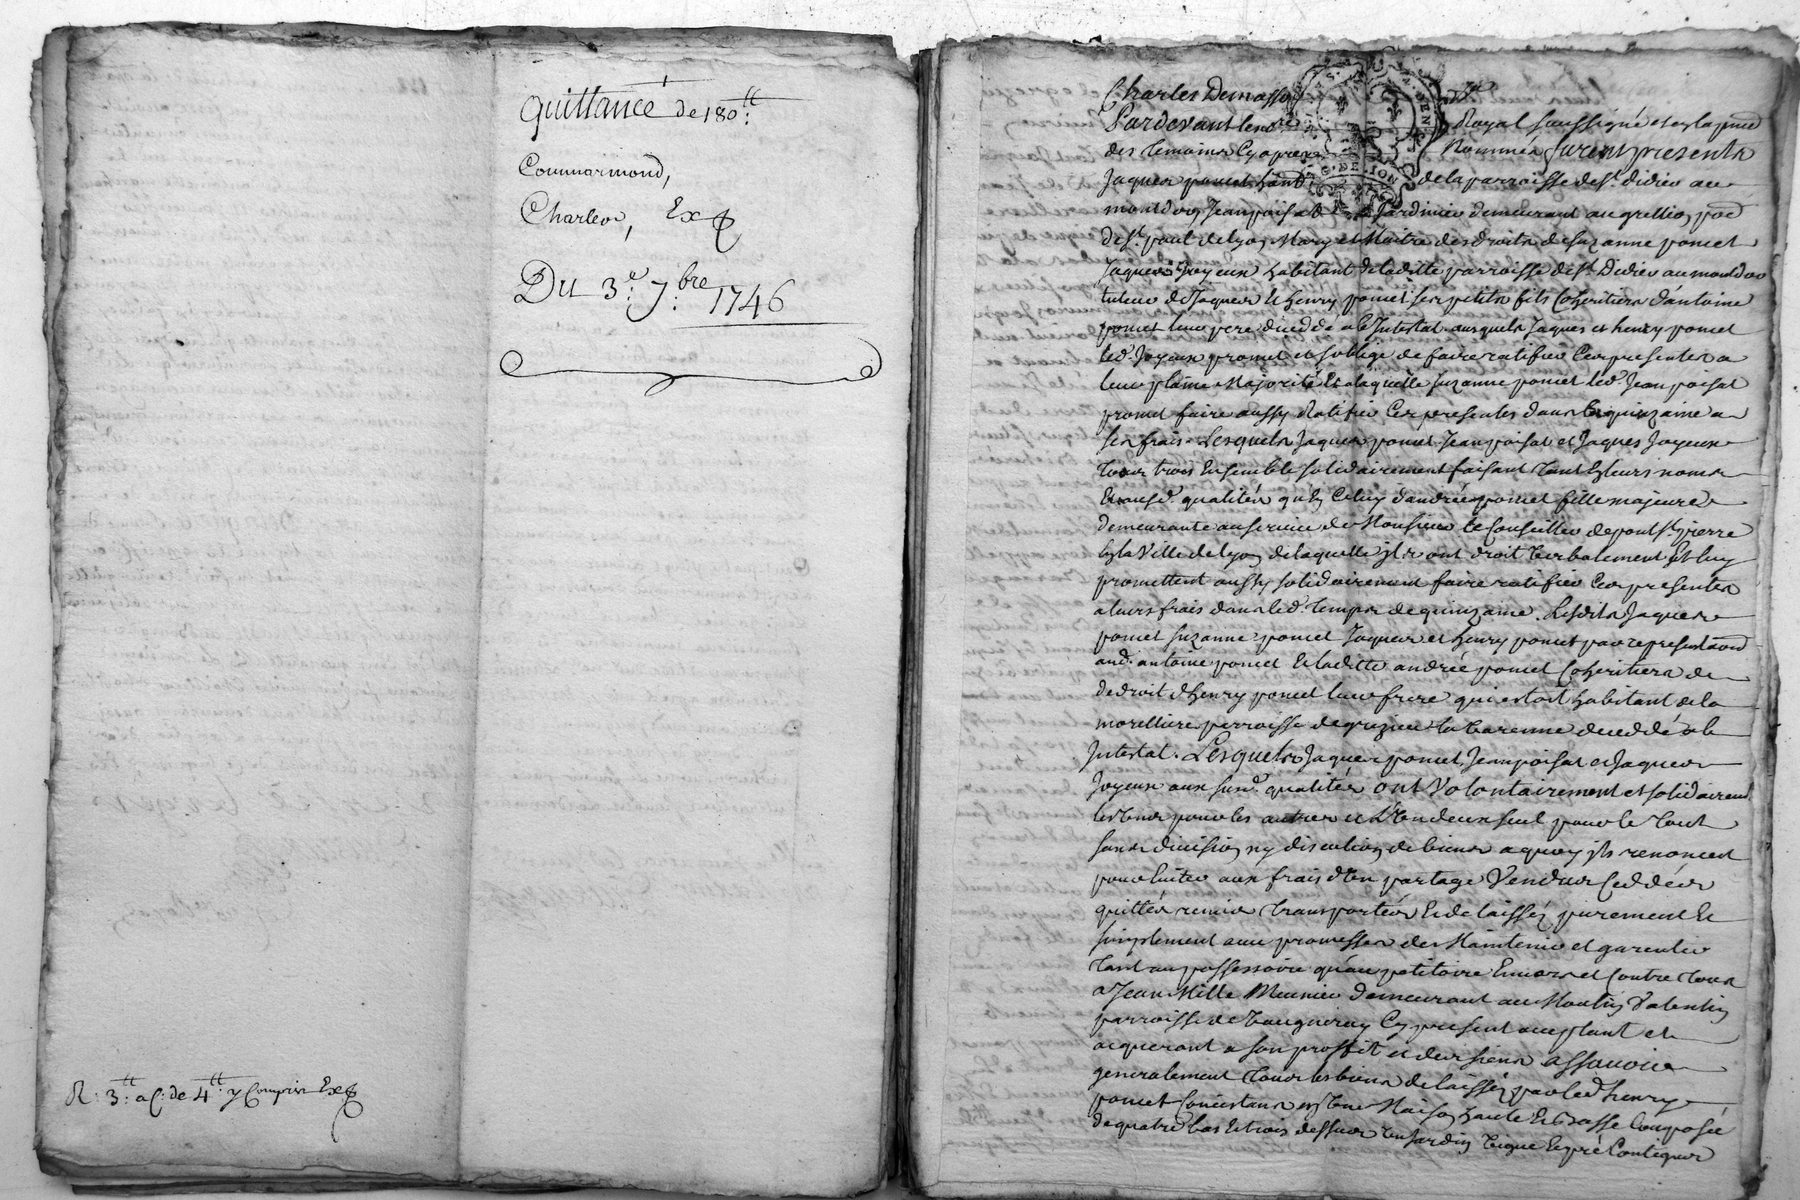 Quittance de 180 tt:
Commarmond,
Charles, Ex
Du 3e: 7:bre 1746
R: 3:tt a C: de 4:tt y Compris Ex
Charles Demasso
Pardevant le no.re Royal soussigné et en la pnce
des temoins Cy apres Nommés furent presents
Jaques poncet habt de la parroisse de St. didier au
montdor, Jean poisat Jardinier demeurant au greillion, pce
de St. paul de Lyon, Mary et Maitre des droits de suzanne poncet
Jaques Joyeux habitant de laditte parroisse de St. Didier au montdor
tuteur de Jaques et henry poncet ses petits fils Coheritiers d'antoine
poncet leur pere decedé ab Intestat, auxquels Jaques et henry poncet
led. Joyeux promet et soblige de faire ratifier Ces presentes a
leur plaine Majorité Et a laquelle suzanne poncet led. Jean poisat
promet faire aussy Ratifier Ces presentes dans la quinzaine a
ses frais. Lesquels Jaques poncet Jean poisat et Jaques Joyeux
tous trois Ensemble solidairement faisant tant En leurs noms
Et ausd. qualités qu'En Celuy d'andrée poncet fille majeure
demeurante au service de Monsieur le Conseiller de pont St. pierre
En la Ville de Lyon de laquelle ils ont droit Verbalement Et luy
promettent aussy solidairement faire ratifier Ces presentes
a leurs frais dans led. temps de quinzaine. Lesdits Jaques
poncet suzanne poncet Jaques et henry poncet par representaon
aud. antoine poncet Et laditte andrée poncet Coheritiers de
de droit d'henry poncet leur frere qui estoit habitant de la
morelliere parroisse de grezieu la Varenne decedé ab
Intestat. Lesquels Jaques poncet, Jean poisat et Jaques
Joyeux aux susd. qualités ont Volontairement et solidairemt
les Uns pour les autres et L'Un d'eux seul pour le tout
sans division ny discution de biens a quoy ils renoncent
pour Eviter aux frais d'Un partage Vendus Ceddés
quittés remis transportés Et delaissés purement Et
simplement avec promesses de Maintenir et garentir
tant au possessoire qu'au petitoire Envers et Contre tous
a Jean Mille Meunier demeurant au Moulin Valentin
parroisse de Vaugneray Cy present acceptant et
acquerant a son proffit et des siens assavoir
generalement tous les biens delaissés par led henry
poncet Consistans en Une Maison haute Et basse Composée
de quatre bas Et trois dessus Un Jardin Vigne Et pré Contigus